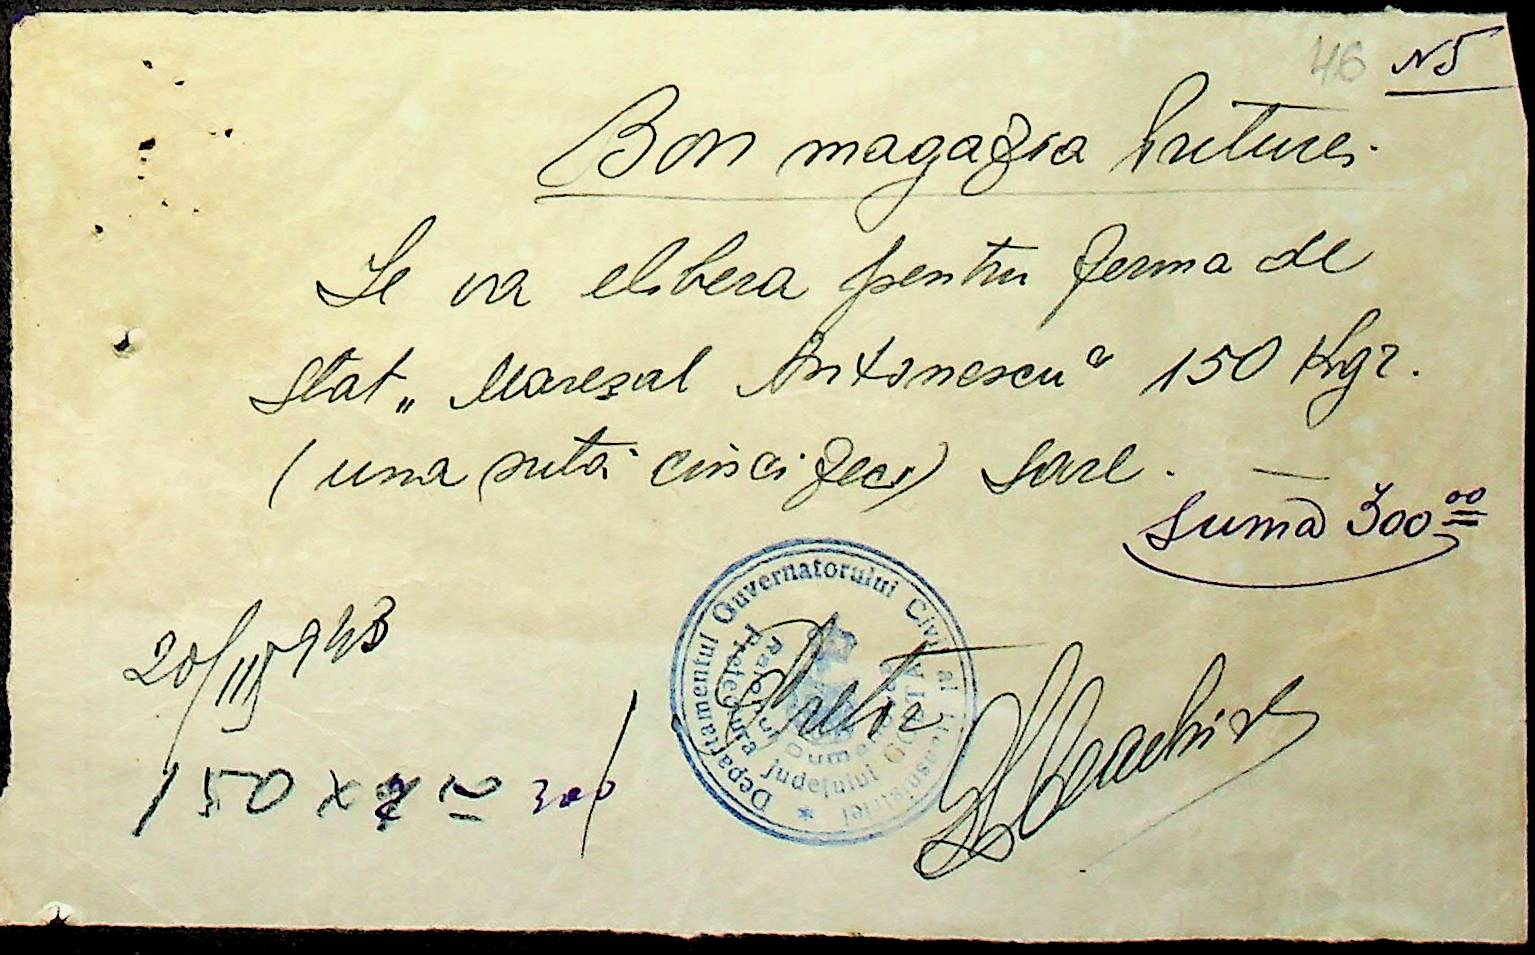 46 N5
Bon magazia
Se va elibera pentru ferma de
Stat „Mareșal Antonescu" 150 Kgr.
(una sută cinci zeci) sare. —
Suma 300 00
20/III 943
150 x 2 = 300
Pretor
Departamentul Guvernatorului Civil al Transnistriei *
Prefectura Județului Golta
Raionul Dumanovca